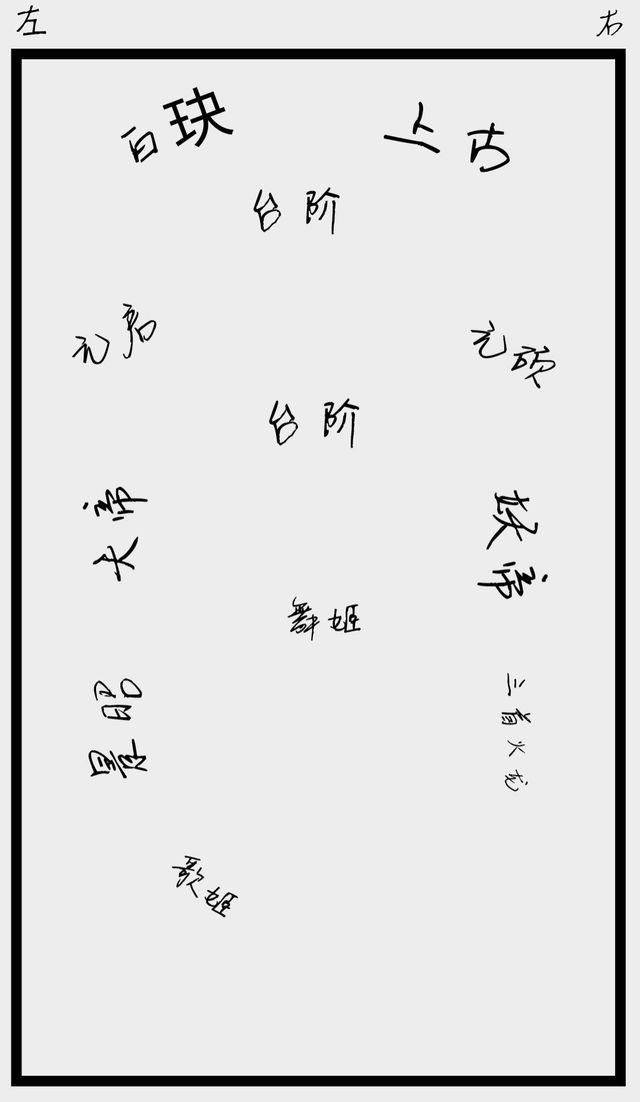 左 右
白玦 上古
台阶
元启 元硕
台阶
天帝 妖帝
舞姬
景昭 三首火龙
歌姬